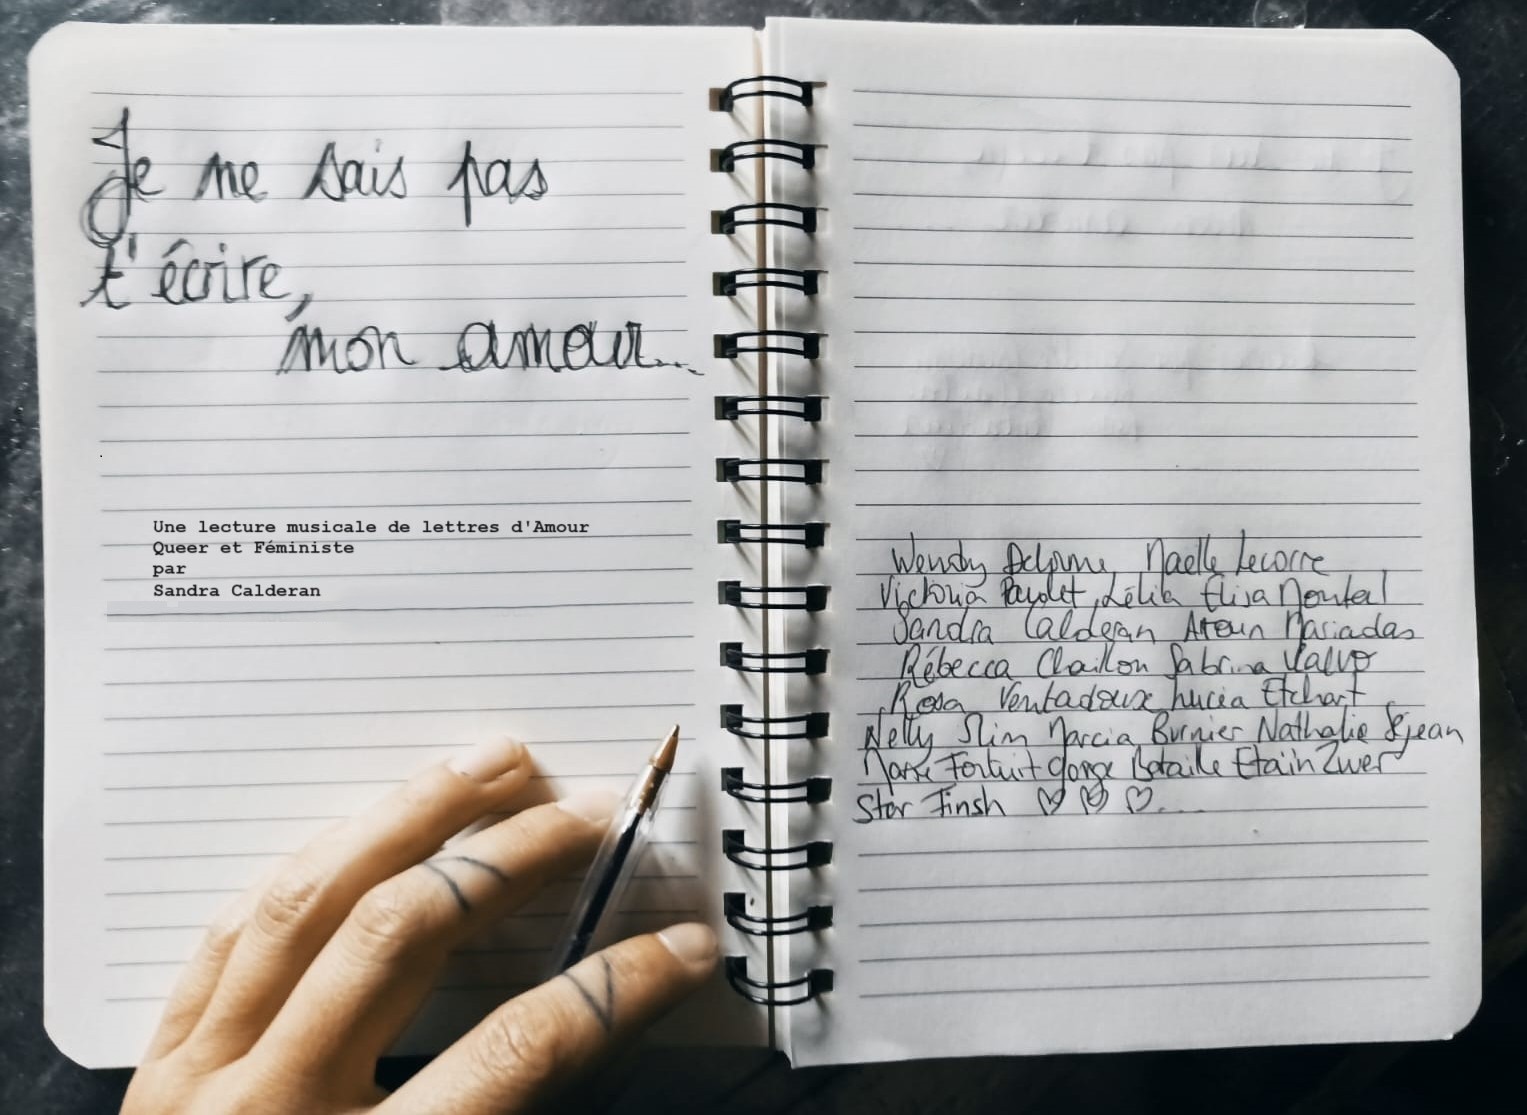 Je ne sais pas
t'écrire,
mon amour...
Une lecture musicale de lettres d'Amour
Queer et Féministe
par
Sandra Calderan
Wendy Delorme Naelle Lecorre
Victoria Paulet, Lélia Elisa Montel
Sandra Calderan Mariadas
Rébecca Chaillon Sabrina Calvo
Rosa Ventadoux Lucia Etchart
Nelly Slim Marcia Burnier Nathalie Séjean
Marie Fortuit Gorge Bataille Etaïn Zwer
Star Finsh ♡ ♡ ♡....